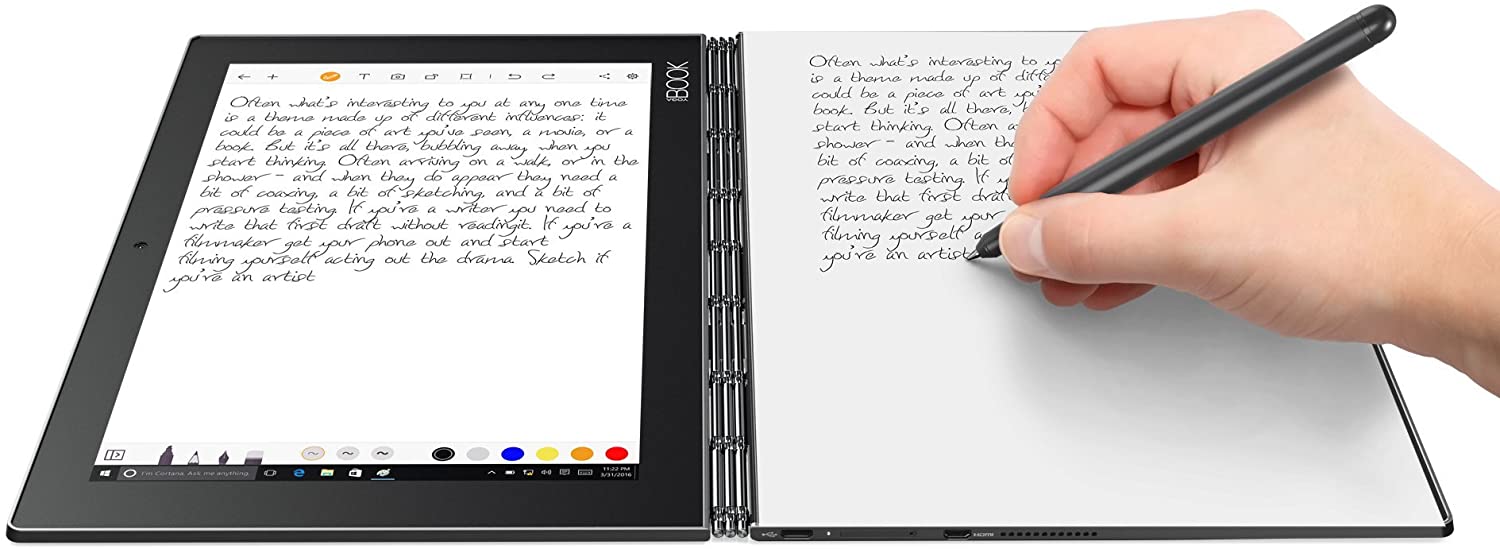 Often what's interesting to you at any one time
is a theme made up of different influences: it
could be a piece of art you've seen, a movie, or a
book. But it's all there, bubbling away, when you
start thinking. Often arriving on a walk, or in the
shower - and when they do appear they need a
bit of coaxing, a bit of sketching, and a bit of
pressure testing. If you're a writer you need to
write that first draft without readingit. If you're a
filmmaker get your phone out and start
filming yourself acting out the drama. Sketch if
you're an artist
I'm Cortana. Ask me anything.
11:22 PM
3/31/2016
YOGA BOOK
Often what's interesting to yo
is a theme made up of diffe
could be a piece of art you'
book. But it's all there, b
start thinking. Often a
shower - and when the
bit of coaxing, a bit
pressure testing. If y
write that first draft
filmmaker get your
filming yourself a
you're an artist
HDMI